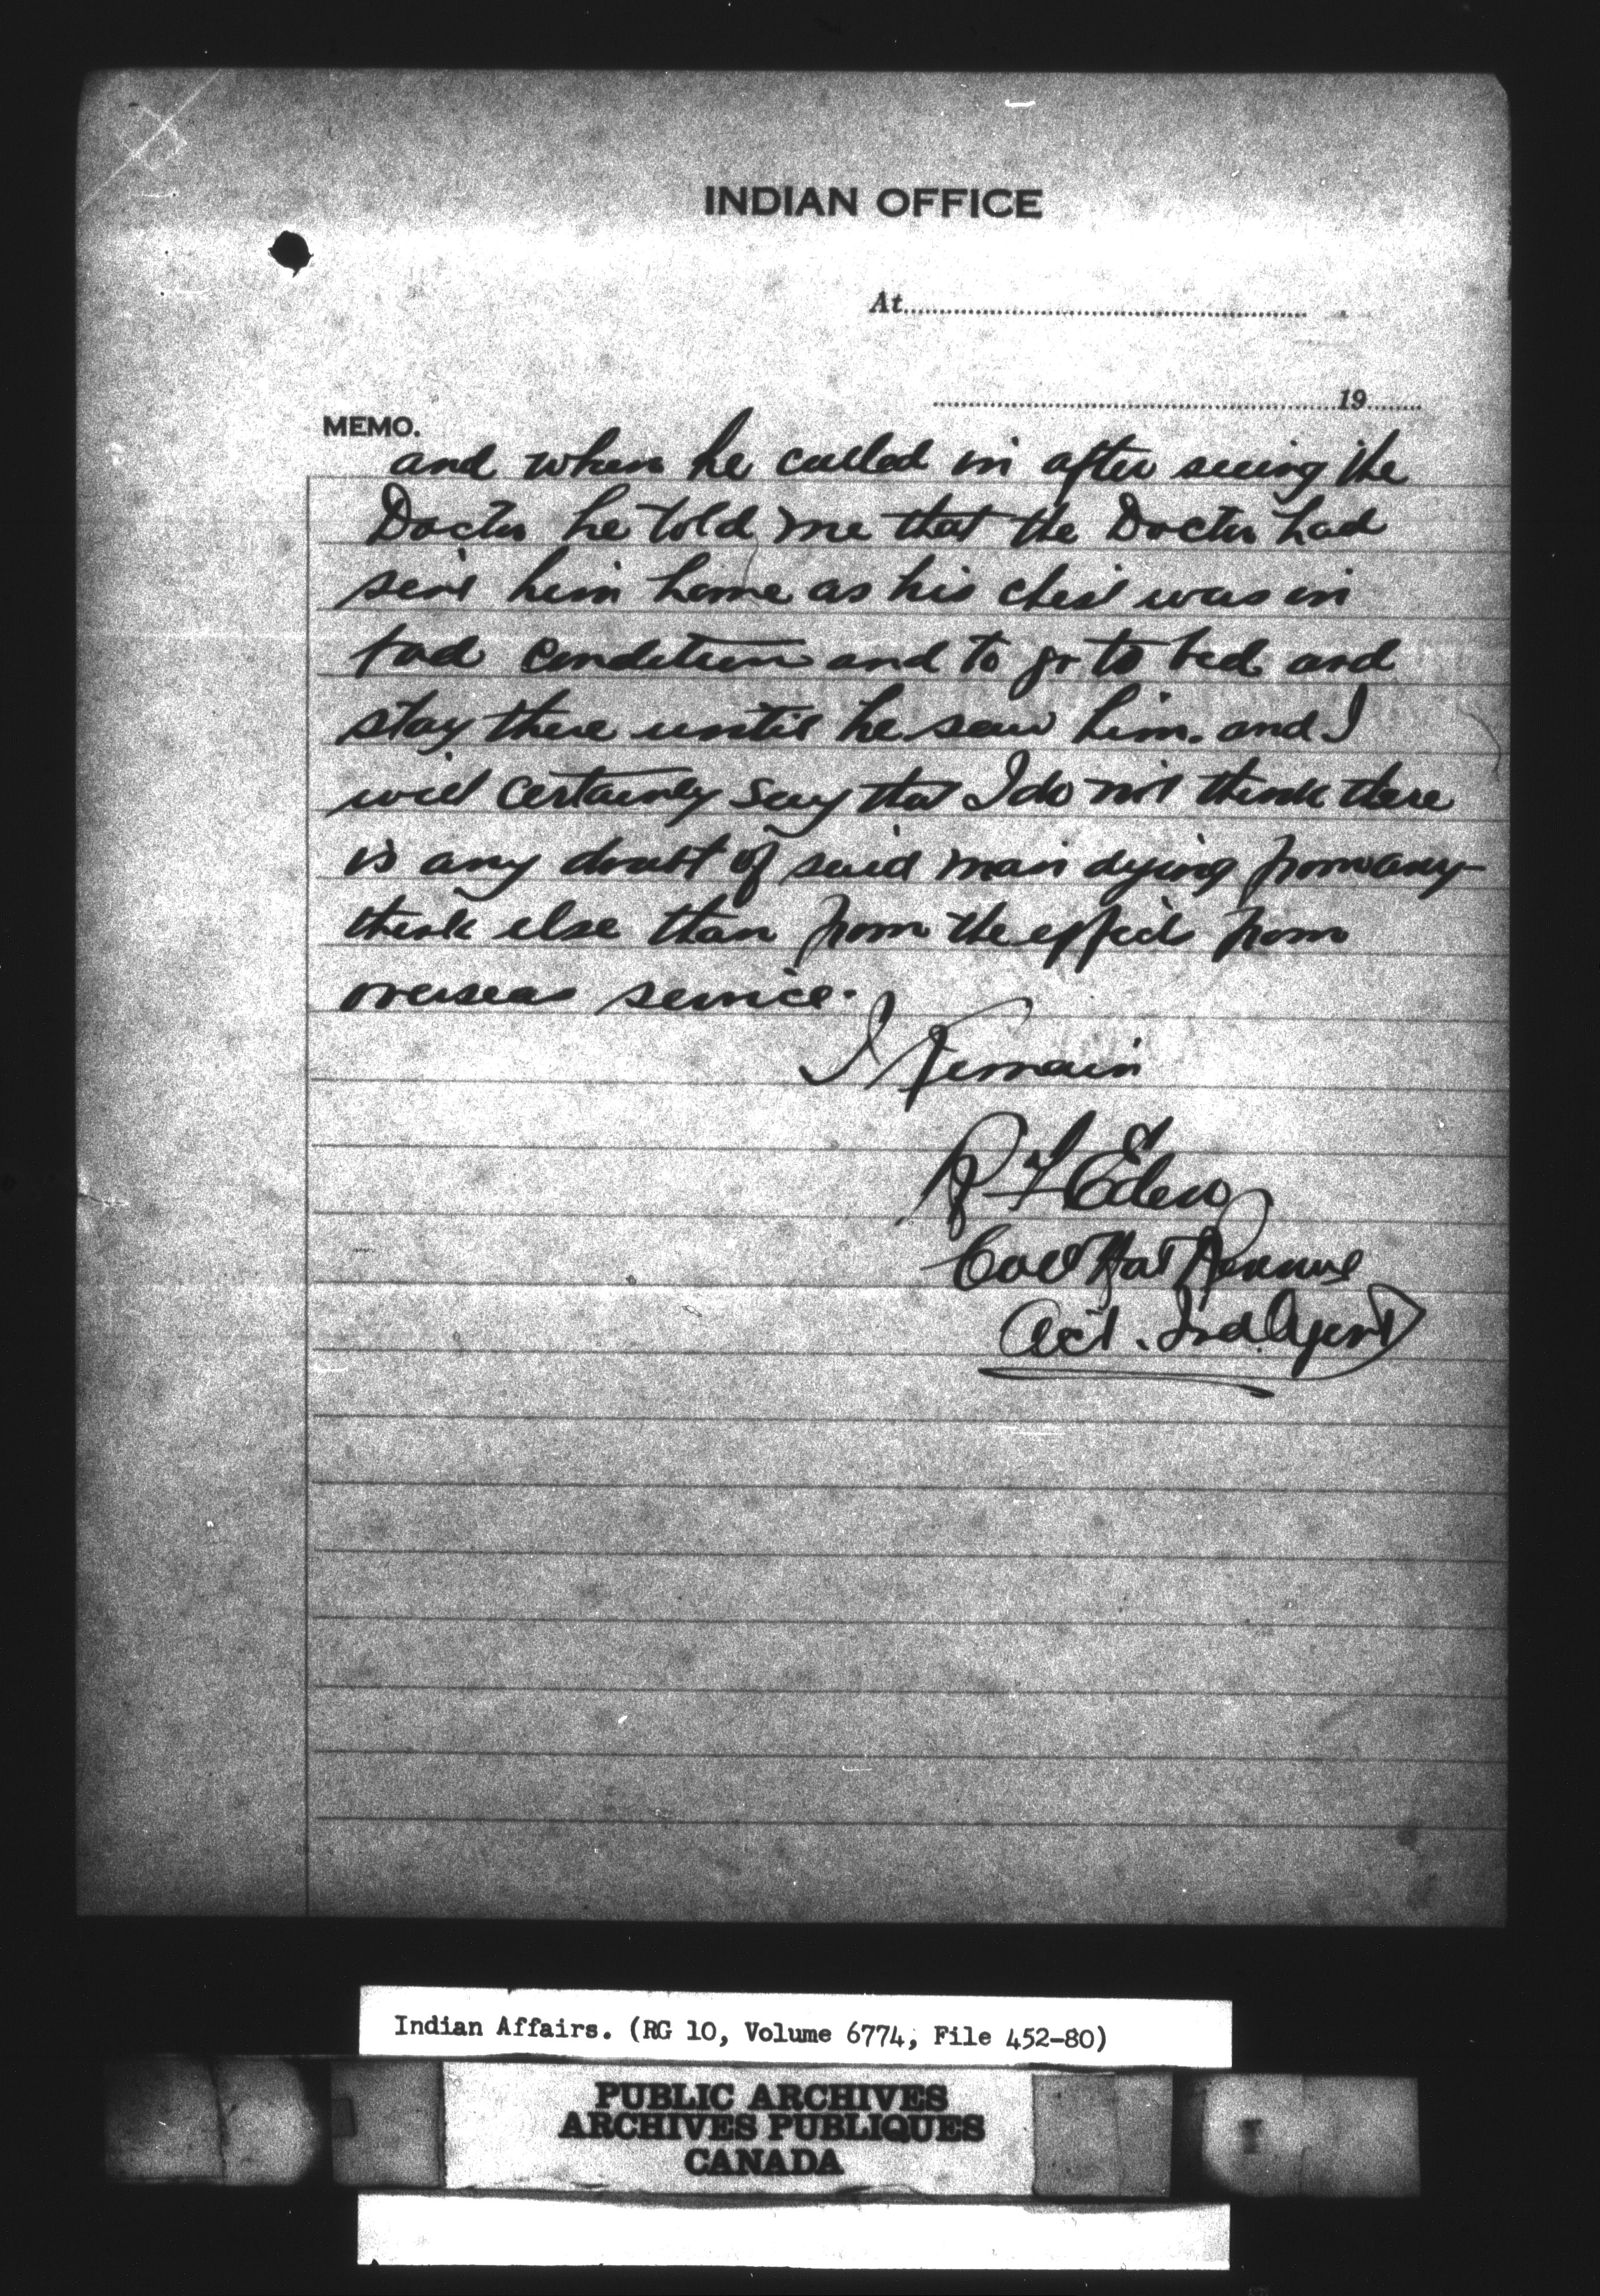 INDIAN OFFICE
At
19
MEMO.
and when he called in after seeing the
Doctor he told me that the Doctor had
sent him home as his chest was in
bad condition and to go to bed and
stay there until he saw him. and I
will certainly say that I do not think there
is any doubt of said man dying from any-
think else than from the effects from
overseas service.
I Remain
R F Eden
Act. Ind. Agent
Indian Affairs. (RG 10, Volume 6774, File 452-80)
PUBLIC ARCHIVES
ARCHIVES PUBLIQUES
CANADA